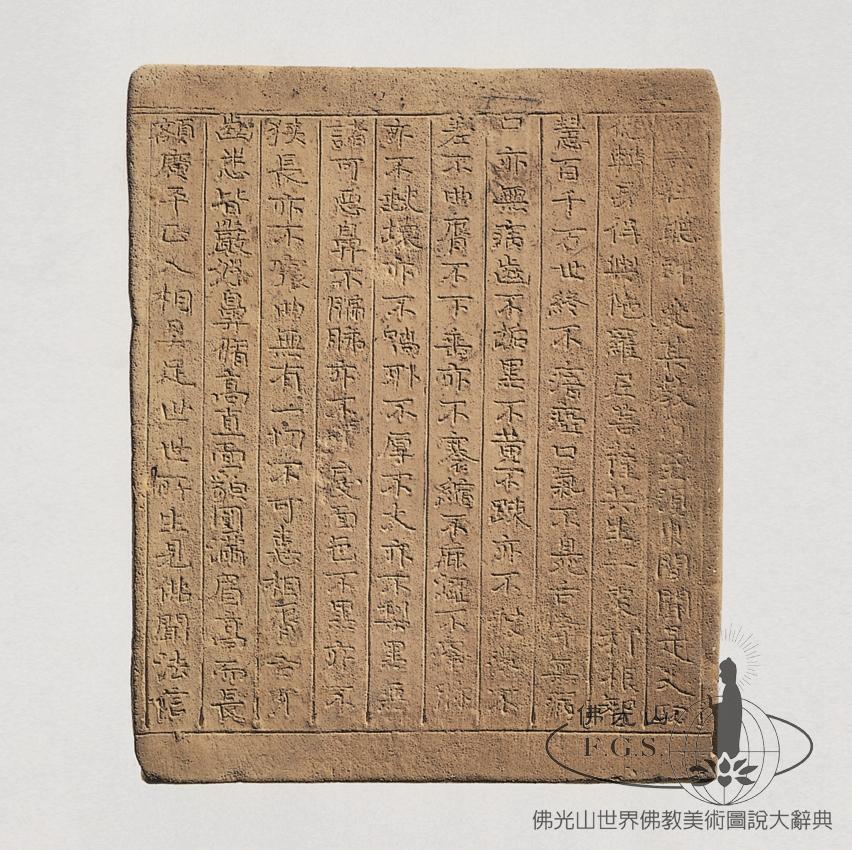 共往聽即受其教乃至須臾間聞是人功
德轉身得與陀羅尼菩薩共生一處利根智
慧百千万世終不瘖瘂口氣不臭舌常無病
口亦無病齒不垢黑不黄不踈亦不缺落不
差不曲脣不下垂亦不褰縮不麁澀不瘡胗
亦不缺壞亦不喎耶不厚不大亦不梨黑無
諸可惡鼻不膈䏲亦不曲戾面色不黑亦不
狹長亦不窊曲無有一切不可憙相脣舌牙
齒悉皆嚴好鼻脩高直面貌圓滿眉高而長
額廣平正人相具足世世所生見佛聞法信
佛光山
F.G.S.
佛光山世界佛教美術圖說大辭典